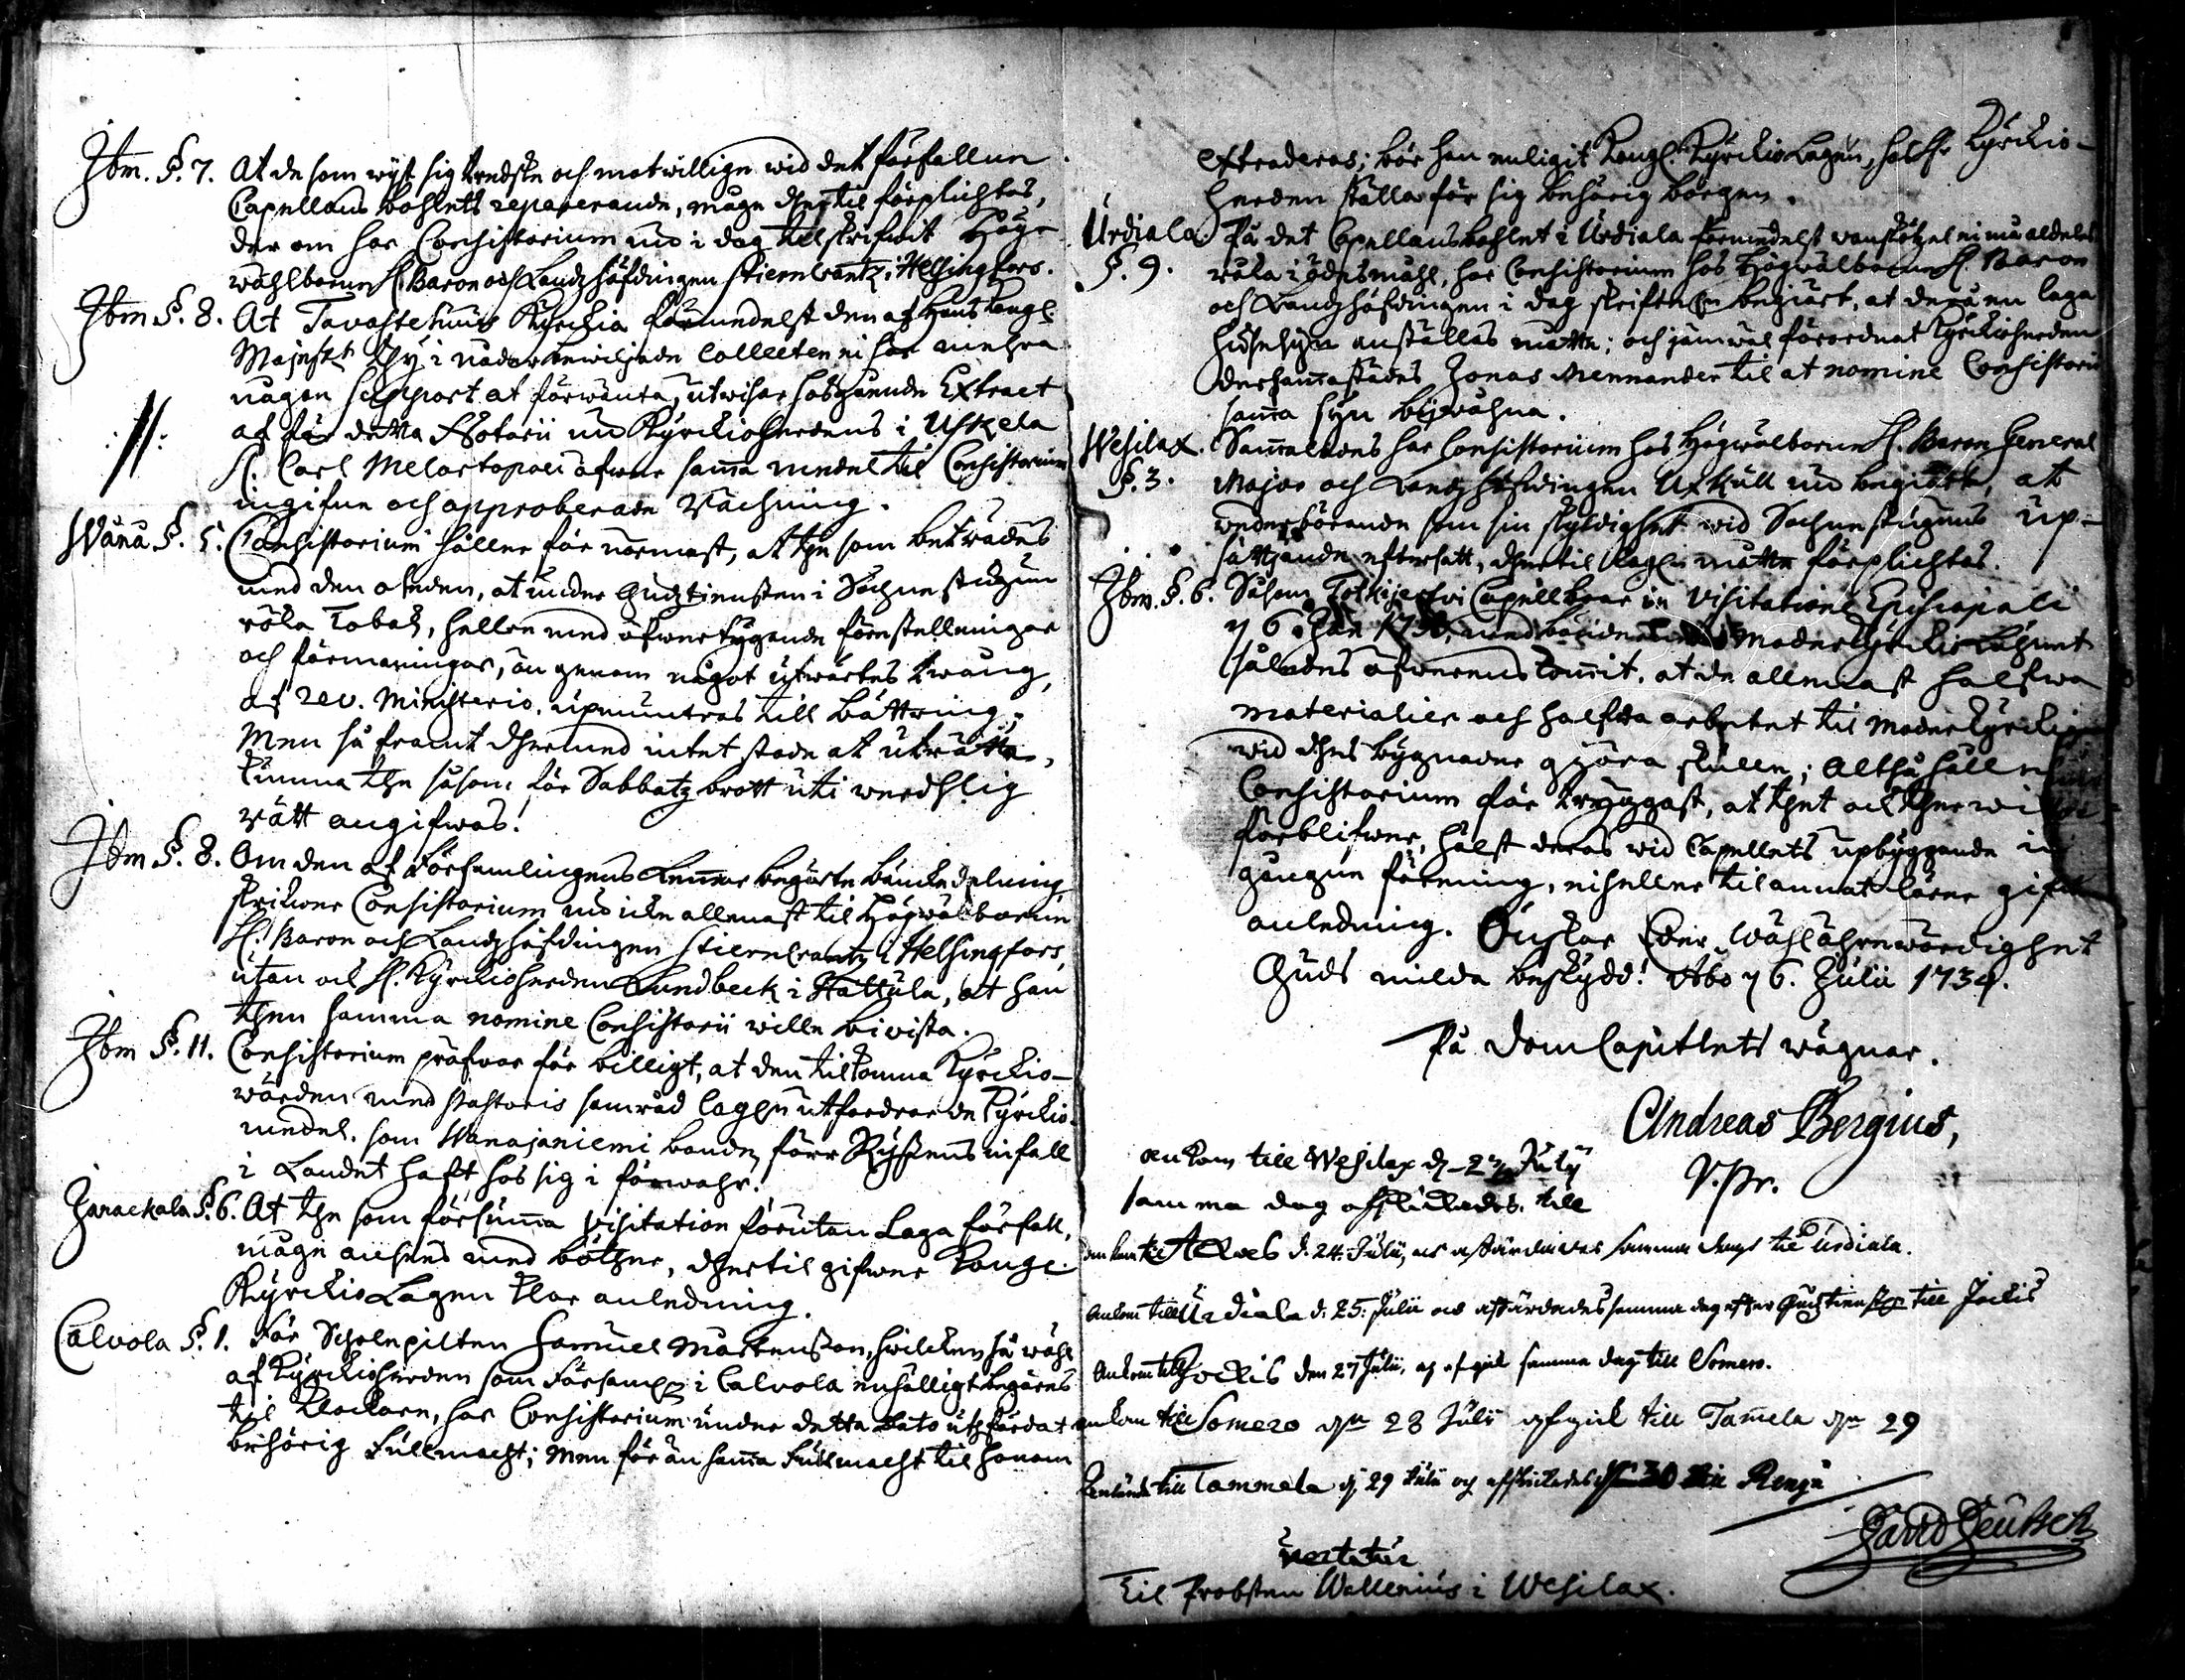 Ibm. §. 7. At de som wyst sig tredske och motwillige wid det förfallne
Capellans bohlets reparerande, måge ther til förplichtas,
der om har Consistorium nu i dag tilskrifwit Höge
wählborne H. Baron och Landzhöfdingen Stierncrantz i Helsingfors.
Ibm §. 8. At Tavastehuus Kyrckia förmedelst den af Hans Kongl.
Majestt Thy i nåder bewiljade Collecten ei har mehra
någon support at förwänta, utwisar hosgående Extract
af för detta Notarii nu Kyrckioherdens i Uskela
H. Carl Melartopoei öfwer samma medel til Consistorium
ingifne och approberade Räckning.
Wånå §. 5. Consistorium håller för närmast, at the som beträdes
med den oseden, at under Gudztiensten i Sochnestugun
röka Tobak, heller med öfwertygande förestellningar
och förmaningar, än genom något utwärtes twång,
af rev. Ministerio, upmuntras till bättring;
Men så framt thermed intet stode at uträtta,
kunna the såsom för Sabbatzbrott uti werdslig
rätt angifwas.
Ibm §. 8. Om den af Församlingens Lemmar begärte bänckedelning
skrifwer Consistorium nu icke allenast til Högwälborne
H. Baron och Landzhöfdingen Stierncrantz i Helsingfors,
utan ock H. Kyrckioherden Lundbeck i Hattula, at han
then samma nomine Consistorii wille biwista.
Ibm §. 11. Consistorium pröfwar för billigt, at den tilkomma Kyrckio-
wärden med Pastoris samråd lagl. utfordrar de Kyrckio-
medel, som Wanajaniemi bonde, förr Ryssens infall
i Landet haft hos sig i förwahr.
Janackala §. 6. At the som försumma Visitation förutan Laga förfall,
måge ansees med böther, ther til gifwer Kongl.
Kyrckio Lagen klar anledning.
Calvola §. 1. För Scholepilten Samuel Mårtensson, hwilcken så wähl
af Kyrckioherden som Församl. i Calvola enhälligt begäres
til Klockare, har Consistorium under detta dato utfärdat
behörig Fullmacht; Men för än samma Fullmacht til honom
extraderas; bör han enligit Kongl. Kyrckio Lagen, hos Hr Kyrckio-
herden ställa för sig behörig borgen.
Urdiala §. 9. På det Capellansbohlet i Urdiala förmedelst wanskötzel ei må aldeles
råka i ödesmåhl, har Consistorium hos Högwälborne H. Baron
och Landzhöfdingen i dag skriftel. begiärt, at derå en laga
huusesyn anställas måtte; och jämwäl förordnat Kyrckioherden
dersammastädes Jonas Mennander til at nomine Consistorii
samma syn bijwåhna.
Wesilax. §. 3. Sammaledes har Consistorium hos Högwälborne H. Baron General
Major och Landzhöfdingen Uxkull nu begiärt, at
wederbörande som sin skyldighet wid Sochnestugans up-
sättjande eftersatt, ther til lagl. måtte förplichtas.
Ibm. §. 6. Såsom Tottijerfwi Capellboar in Visitatione Episcopali
Moderkyrckio
således öfwerenskommit, at de allenast halfwa
materialier och halfwa arbetet til Moderkyrckian
wid thes bygnader giöra skulle; Altså håller
Consistorium för tryggast, at thet ock ther wid
förblifwer, hälst deras wid Capellets upbyggande in
gångne förening, ei heller til annat lärer gifwa
anledning. Önskar Eder Wählährewördighet
Guds milda beskydd! Åbo d 6. Julii 1734.
På DomCapitlets wägnar.
Andreas Bergius,
V. Pr.
ankom till Wesilax d. 23 July
samma dag afskickades till
ankom til Akas d. 24. Julii, och afsändades samma dag til Urdiala.
Ankom till Urdiala d: 25: Julii och afsärdades samma dag efter Gudztiensten till Jockis
Ankom till Jockis den 27 Julii, og afgick samma dag till Somero.
ankom till Somero d 28 Julii afgick till Tamela d 29
till Tammela d 29 Julii og afskickades d 30 till Rengo
David Deutsch
vertatur
Til Probsten Wallenius i Wesilax.